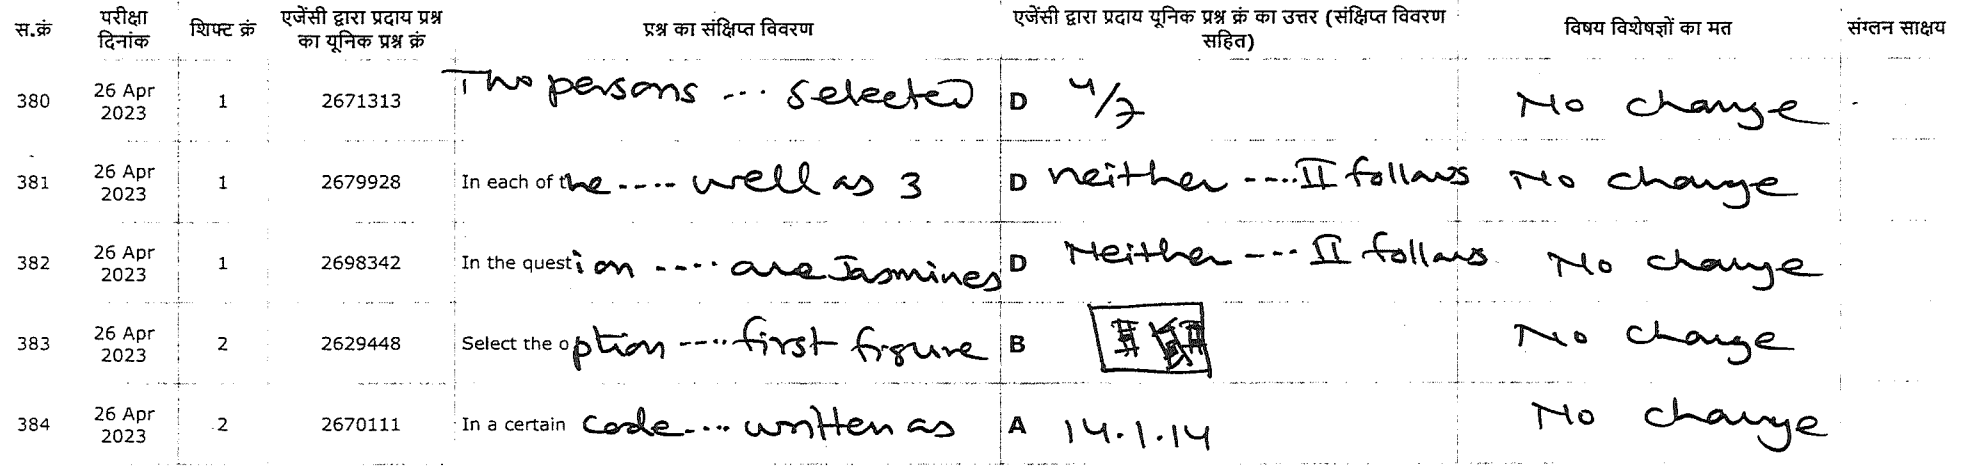 स.क्रं परीक्षा दिनांक शिफ्ट क्रं एजेंसी द्वारा प्रदाय प्रश्न का यूनिक प्रश्न क्रं प्रश्न का संक्षिप्त विवरण एजेंसी द्वारा प्रदाय यूनिक प्रश्न क्रं का उत्तर (संक्षिप्त विवरण सहित) विषय विशेषज्ञों का मत संग्लन साक्षय
380 26 Apr 2023 1 2671313 Two persons ... selected D 4/7 No change
381 26 Apr 2023 1 2679928 In each of the .... well as 3 D neither ....II follows No change
382 26 Apr 2023 1 2698342 In the question .... are Jasmines D Neither --- II follows No change
383 26 Apr 2023 2 2629448 Select the option .... first figure B No change
384 26 Apr 2023 2 2670111 In a certain code.... written as A 14.1.14 No change